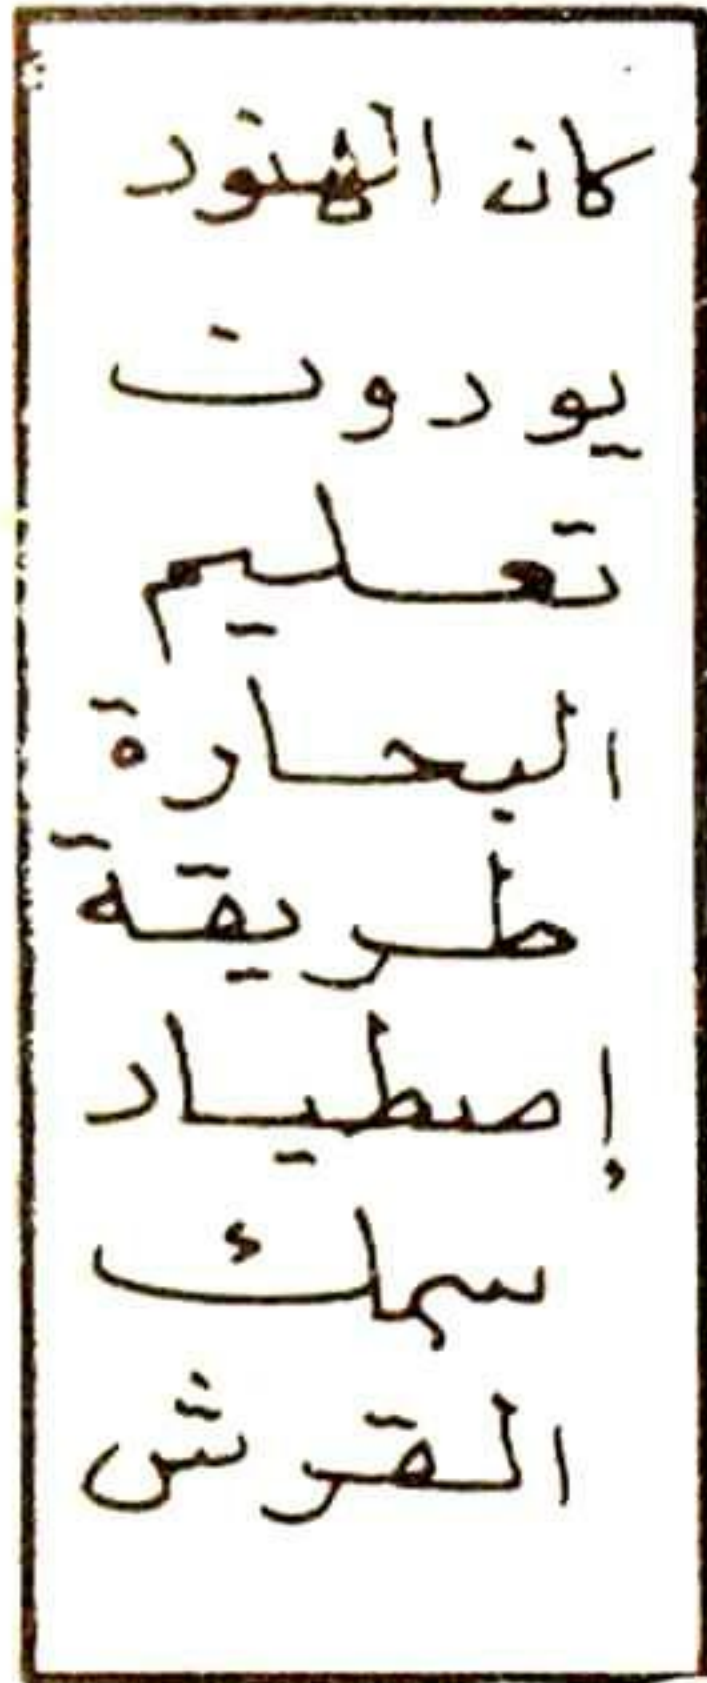 كان الهنود
يودون
تعليم
البحارة
طريقة
إصطياد
سمك
القرش